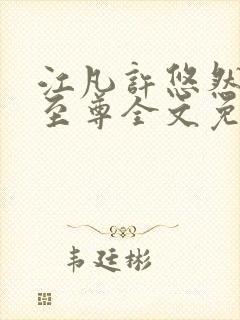 江凡許悠然
至尊全文免
韦廷彬